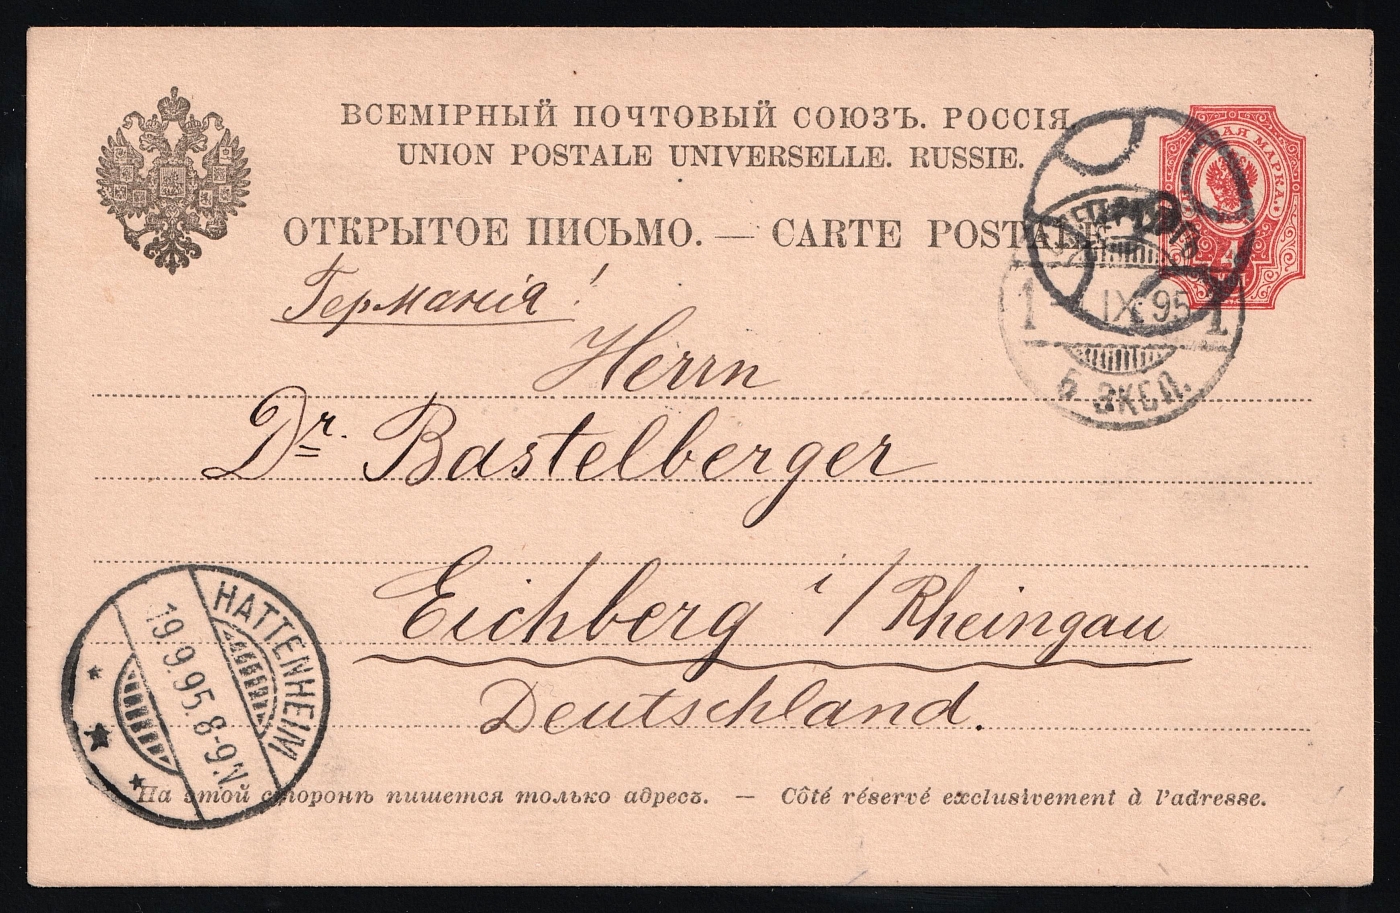 ВСЕМІРНЫЙ ПОЧТОВЫЙ СОЮЗЪ. РОССІЯ.
UNION POSTALE UNIVERSELLE. RUSSIE.
ОТКРЫТОЕ ПИСЬМО. — CARTE POSTALE
МАРКА.
4
1 IX 95 1
6 ЭКСП.
Германія!
Herrn
Dr. Bastelberger
Eichberg i/Rheingau
Deutschland.
HATTENHEIM
19.9.95. 8-9 N.
На этой сторонѣ пишется только адресъ. — Côté réservé exclusivement à l'adresse.